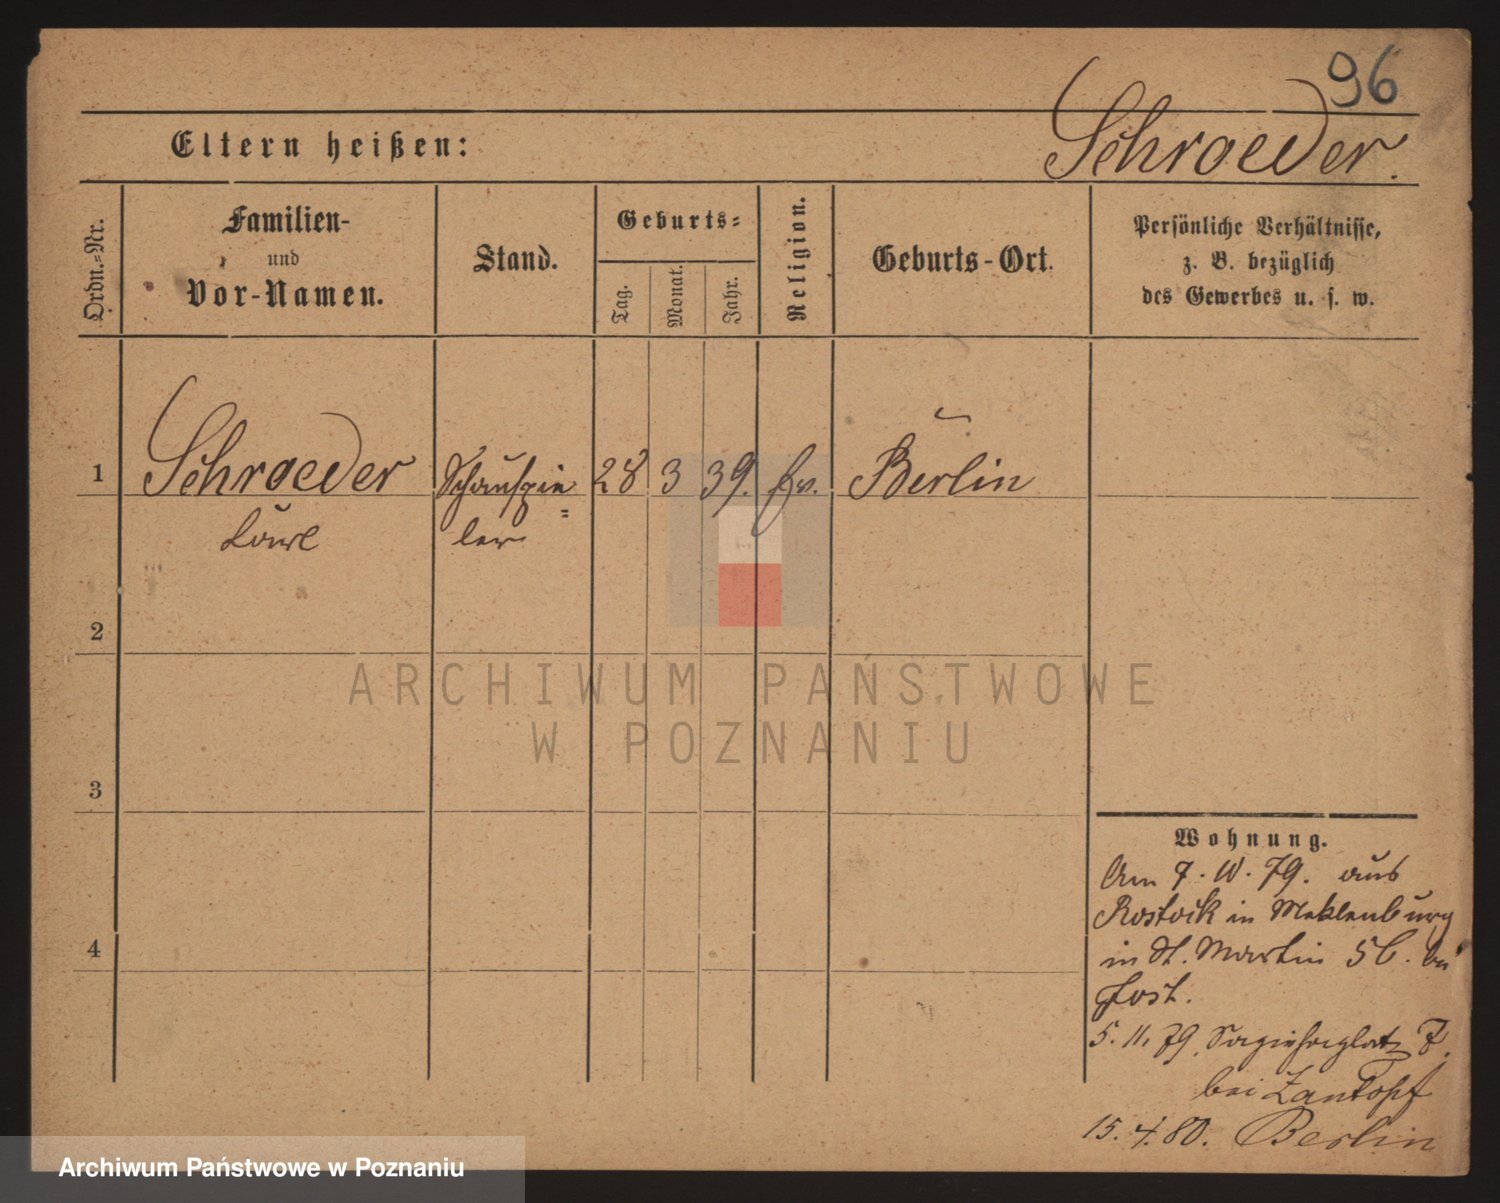 96
Schroeder.
Eltern heißen:
Ordn.=Nr.
Familien-
und
Vor-Namen.
Stand.
Geburts=
Tag.
Monat.
Jahr.
Religion.
Geburts-Ort.
Persönliche Verhältnisse,
z. B. bezüglich
des Gewerbes u. s. w.
1
Schroeder
Schauspie=
28
3
39.
Ev.
Berlin
ler
2
3
4
ARCHIWUM PAŃSTWOWE
W POZNANIU
Wohnung.
Am 7. 79. aus
Rostock in Meklenburg
in St. Martin bei
Jost.
5. 11. 79. Sapiehaplatz 7.
bei Zantopf
15. 4. 80. Berlin
Archiwum Państwowe w Poznaniu